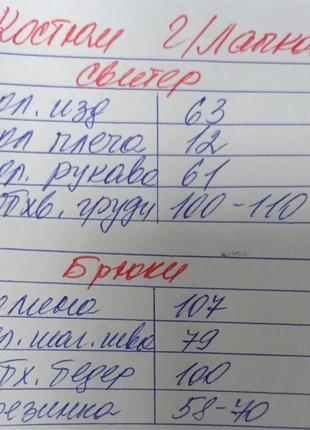 Костюм г/Лапка
свитер
дл. изд 63
дл плеча 12
дл. рукава 61
обхв. груди 100-110
Брюки
длина 107
дл. шаг. шва 79
об. бедер 100
резинка 58-70